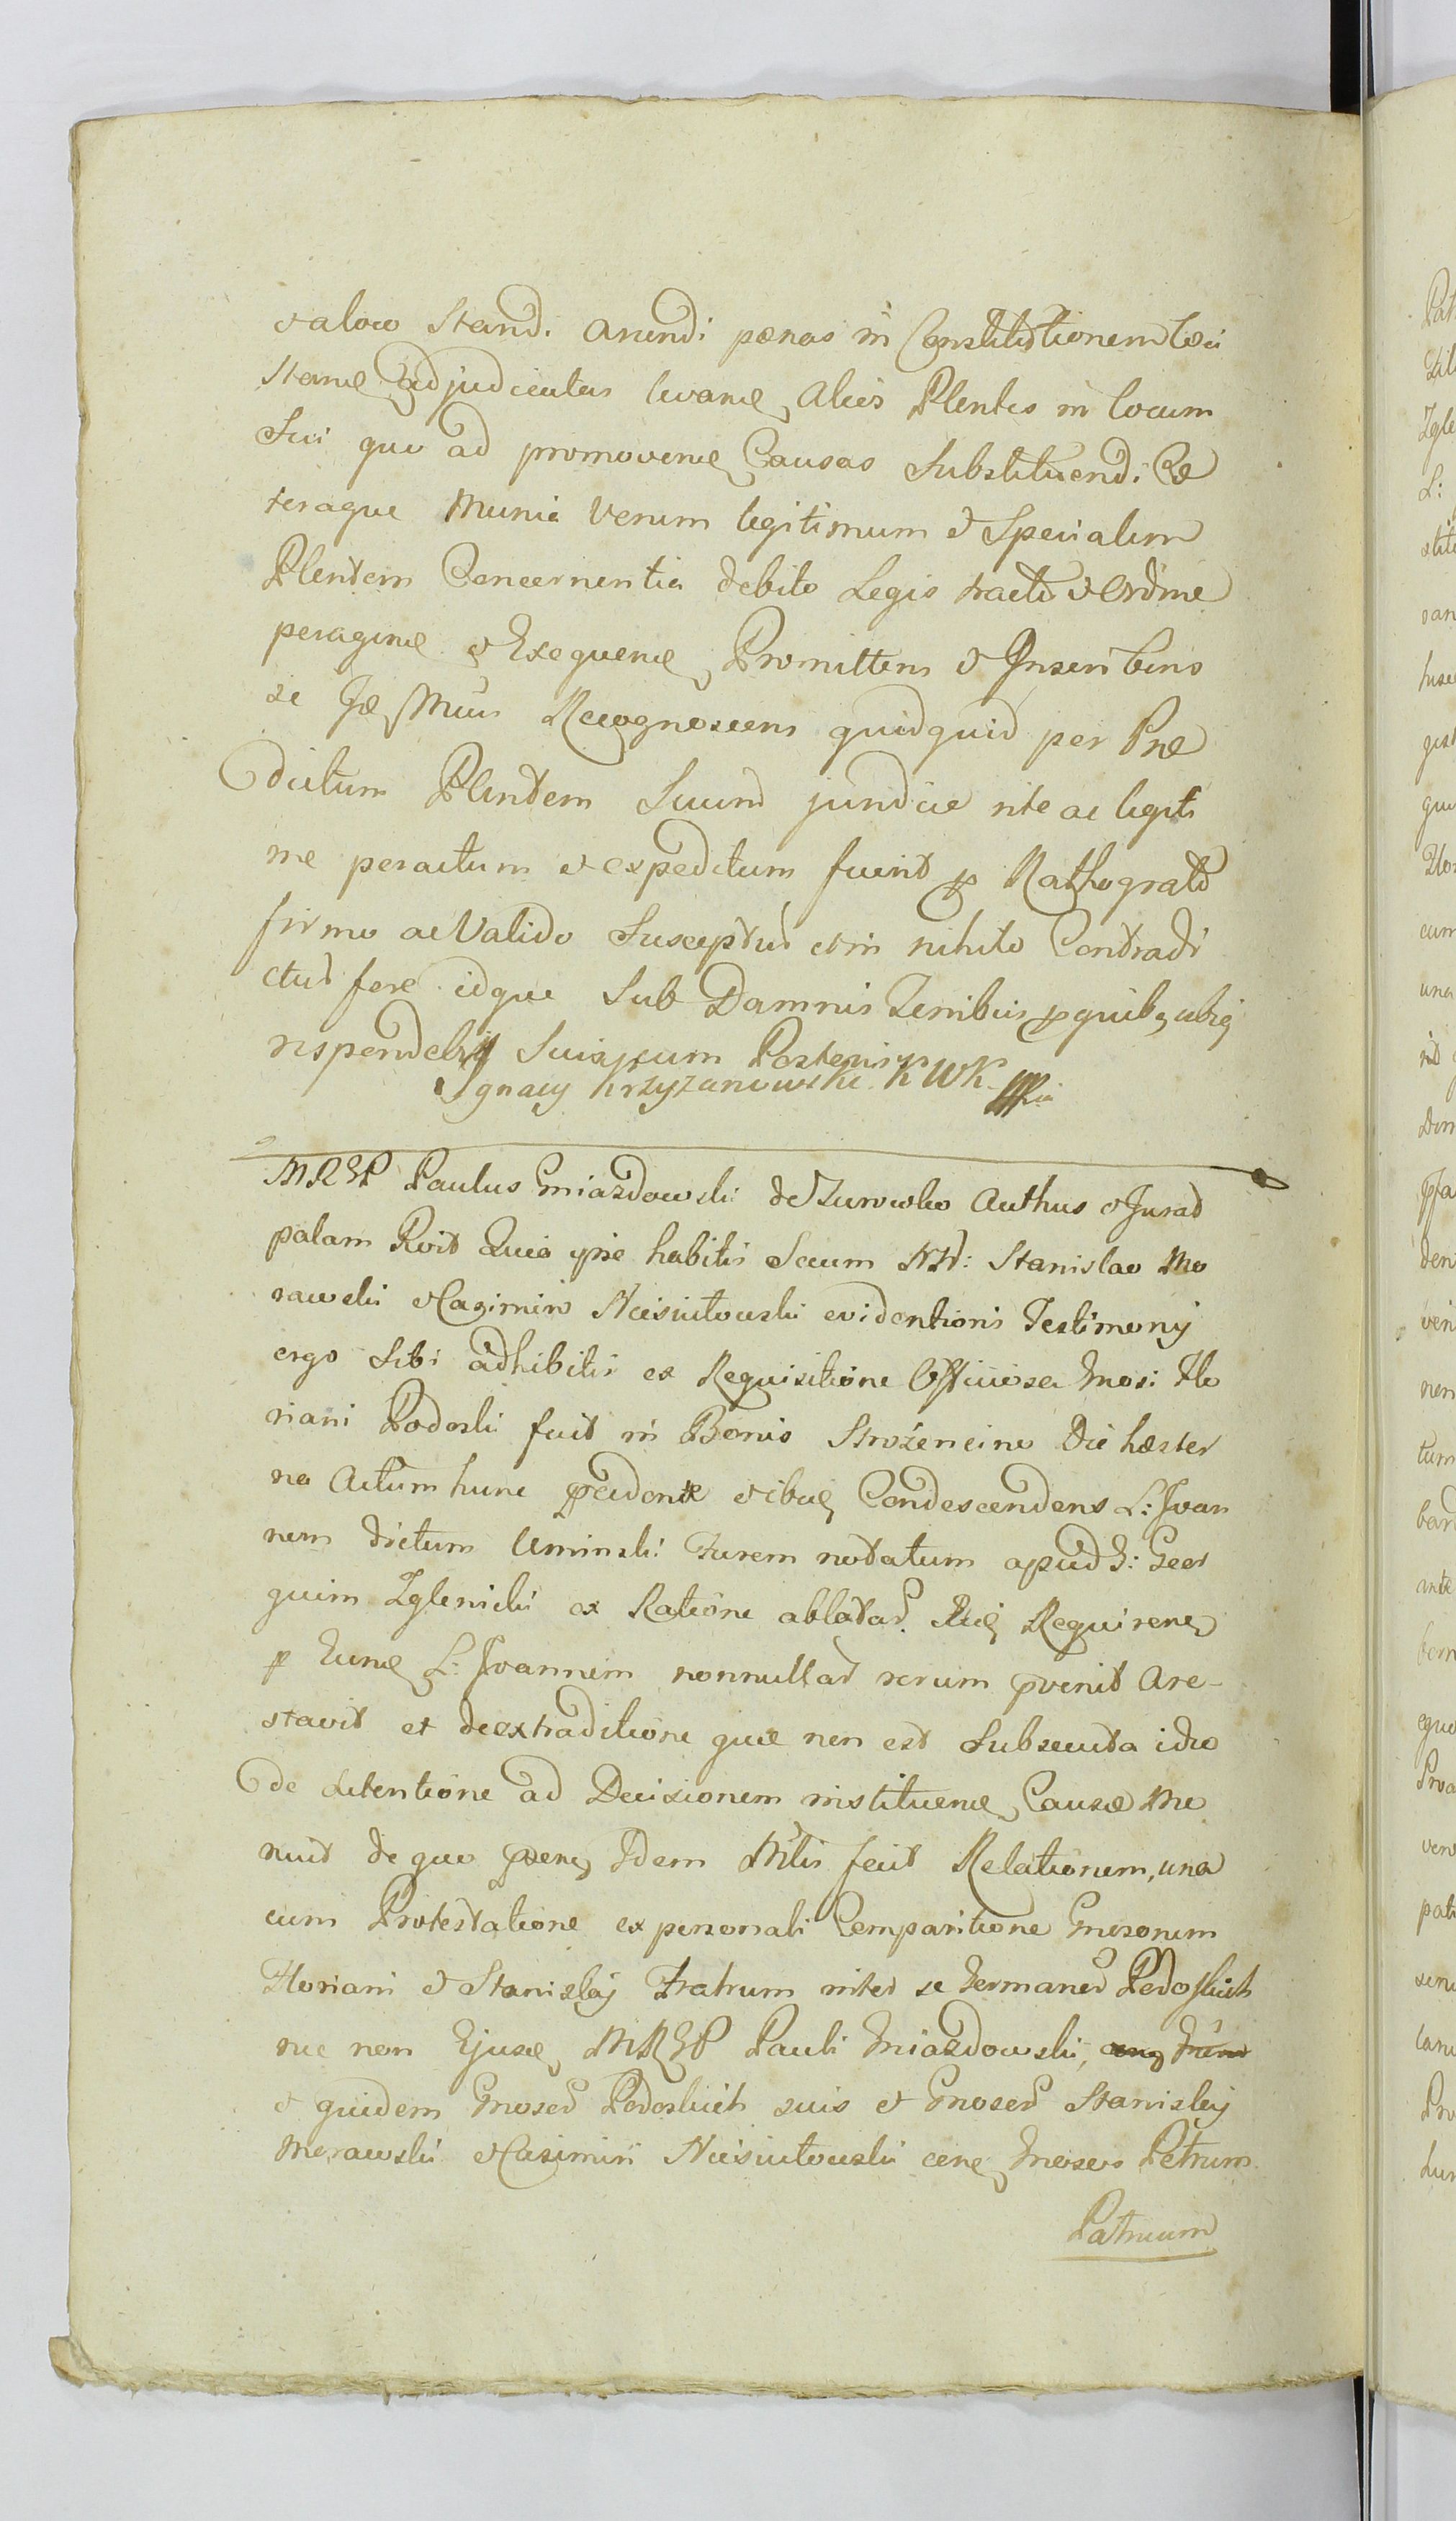 valore Standi arendi pœnas in Constitutionem Loci
Stane adjudicatas luvane, alios Plentes in locum
Sui quo ad promovene Causas Substituendi Cæ
teraque Munia Verum legitimum et Specialem
Plentem Concernentia debito Legis tractu et Ordine
peragine et Exequene, Promittens et Inscribens
se Recognoscens quidquid per Præ
dictum Plentem Suum juridice rite ac legiti
me peractum et expeditum fuerit p Rathogratto
firmo ac Valido Suscepturū et in nihilo Contradi
cturū fore idque Sub Damnis Terribus p quib, ubiq
respondebit Suis cum Posteris
Ignacy Krzyzanowski K W K mpria
MREP Paulus Gniazdowski de Zurowko Authus et Jurat
palam Rvit Quia ipse habitis Secum NN: Stanislao Mo
rawski et Casimiro Niesiulowski evidentioris Testimony
ergo Sibi adhibitis ex Requisitione Officiosa Gnosi Flo
riani Podoski fuit in Bonis Strozencino Die hæster
na Actum hunc pcedente et ibiq Condescendens L: Joan
nem dictum Uminski Furem notatum apud G: Geor
gium Zglenicki ex Ratione ablatar Requirene
p Eune L: Joannem nonnullar rerum pvenit Are-
stavit et de extraditione quæ non est Subsecuta ideo
de detentione ad Decisionem instituene, Causæ Mo
nuit de quo Idem Mtlis fecit Relationem, una
cum Protestatione ex personali Comparitione Gnosorum
Floriani et Stanislaj Fratrum inter se Germanor Podoskich
nec non Ejusde, MREP Pauli Gniazdowski,
et quidem Gnosor Podoskich suis et Gnosor Stanislaj
Morawski et Casimiri Niesiulowski Gnosos Petrum
Patruum